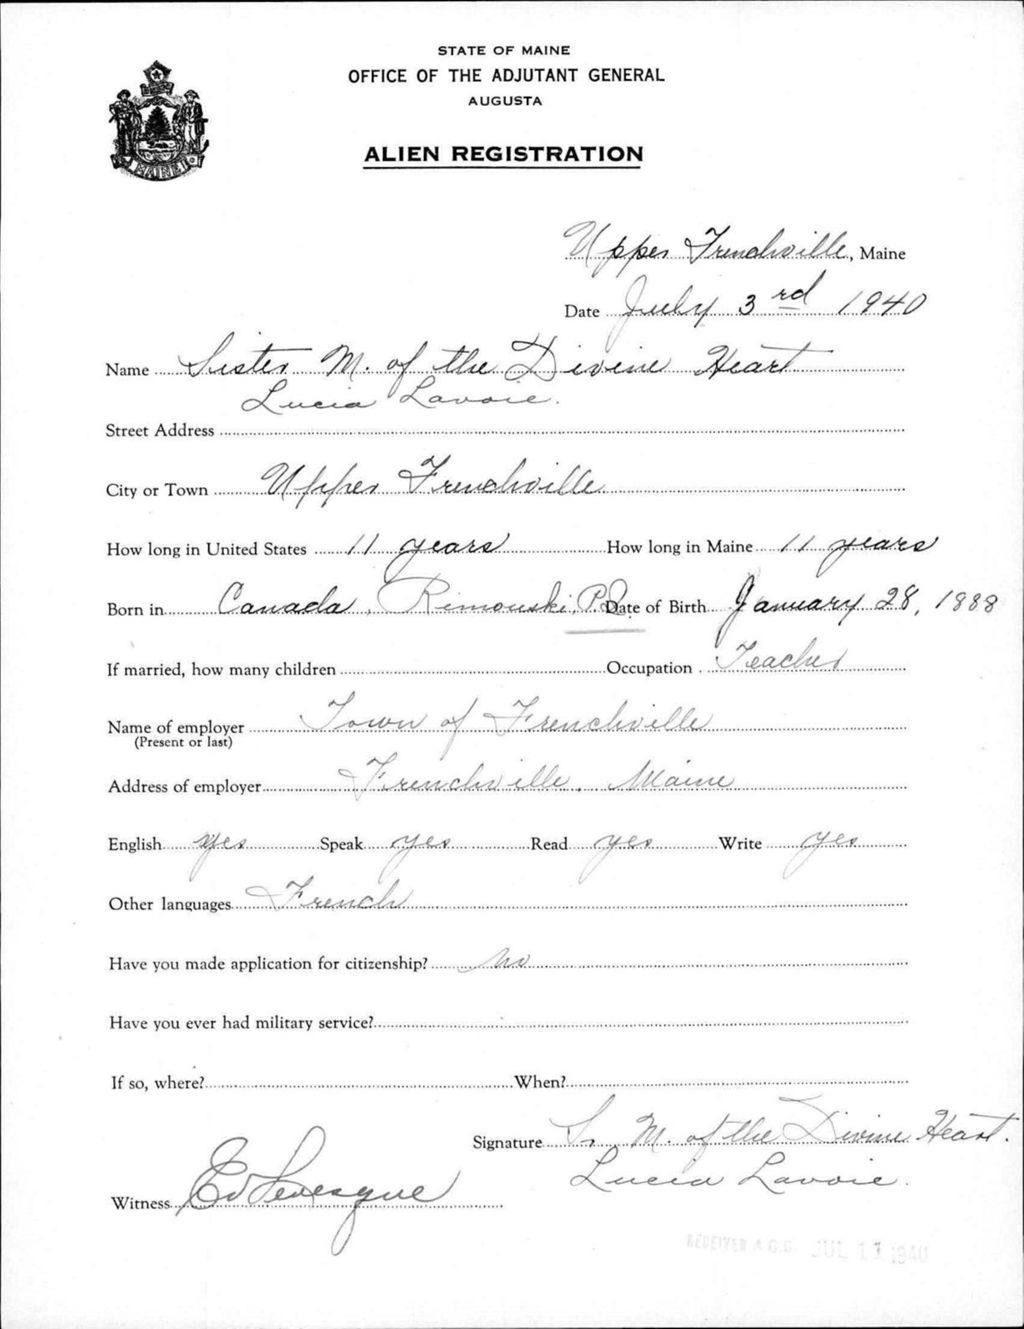 STATE OF MAINE
OFFICE OF THE ADJUTANT GENERAL
AUGUSTA
ALIEN REGISTRATION
MAINE
Upper Frenchville, Maine
Date July 3rd 1940
Name Sister M. of the Divine Heart
Lucia Lavoie.
Street Address
City or Town Upper Frenchville
How long in United States 11 years How long in Maine 11 years
Born in Canada, Rimouski, P.Q. Date of Birth January 28, 1888
If married, how many children Occupation Teacher
Name of employer Town of Frenchville
(Present or last)
Address of employer Frenchville, Maine
English yes Speak yes Read yes Write yes
Other languages French
Have you made application for citizenship? No
Have you ever had military service?
If so, where? When?
Signature Sr. M. of the Divine Heart.
Lucia Lavoie.
Witness Ed Levesque
RECEIVED A.G.O. JUL 13 1940